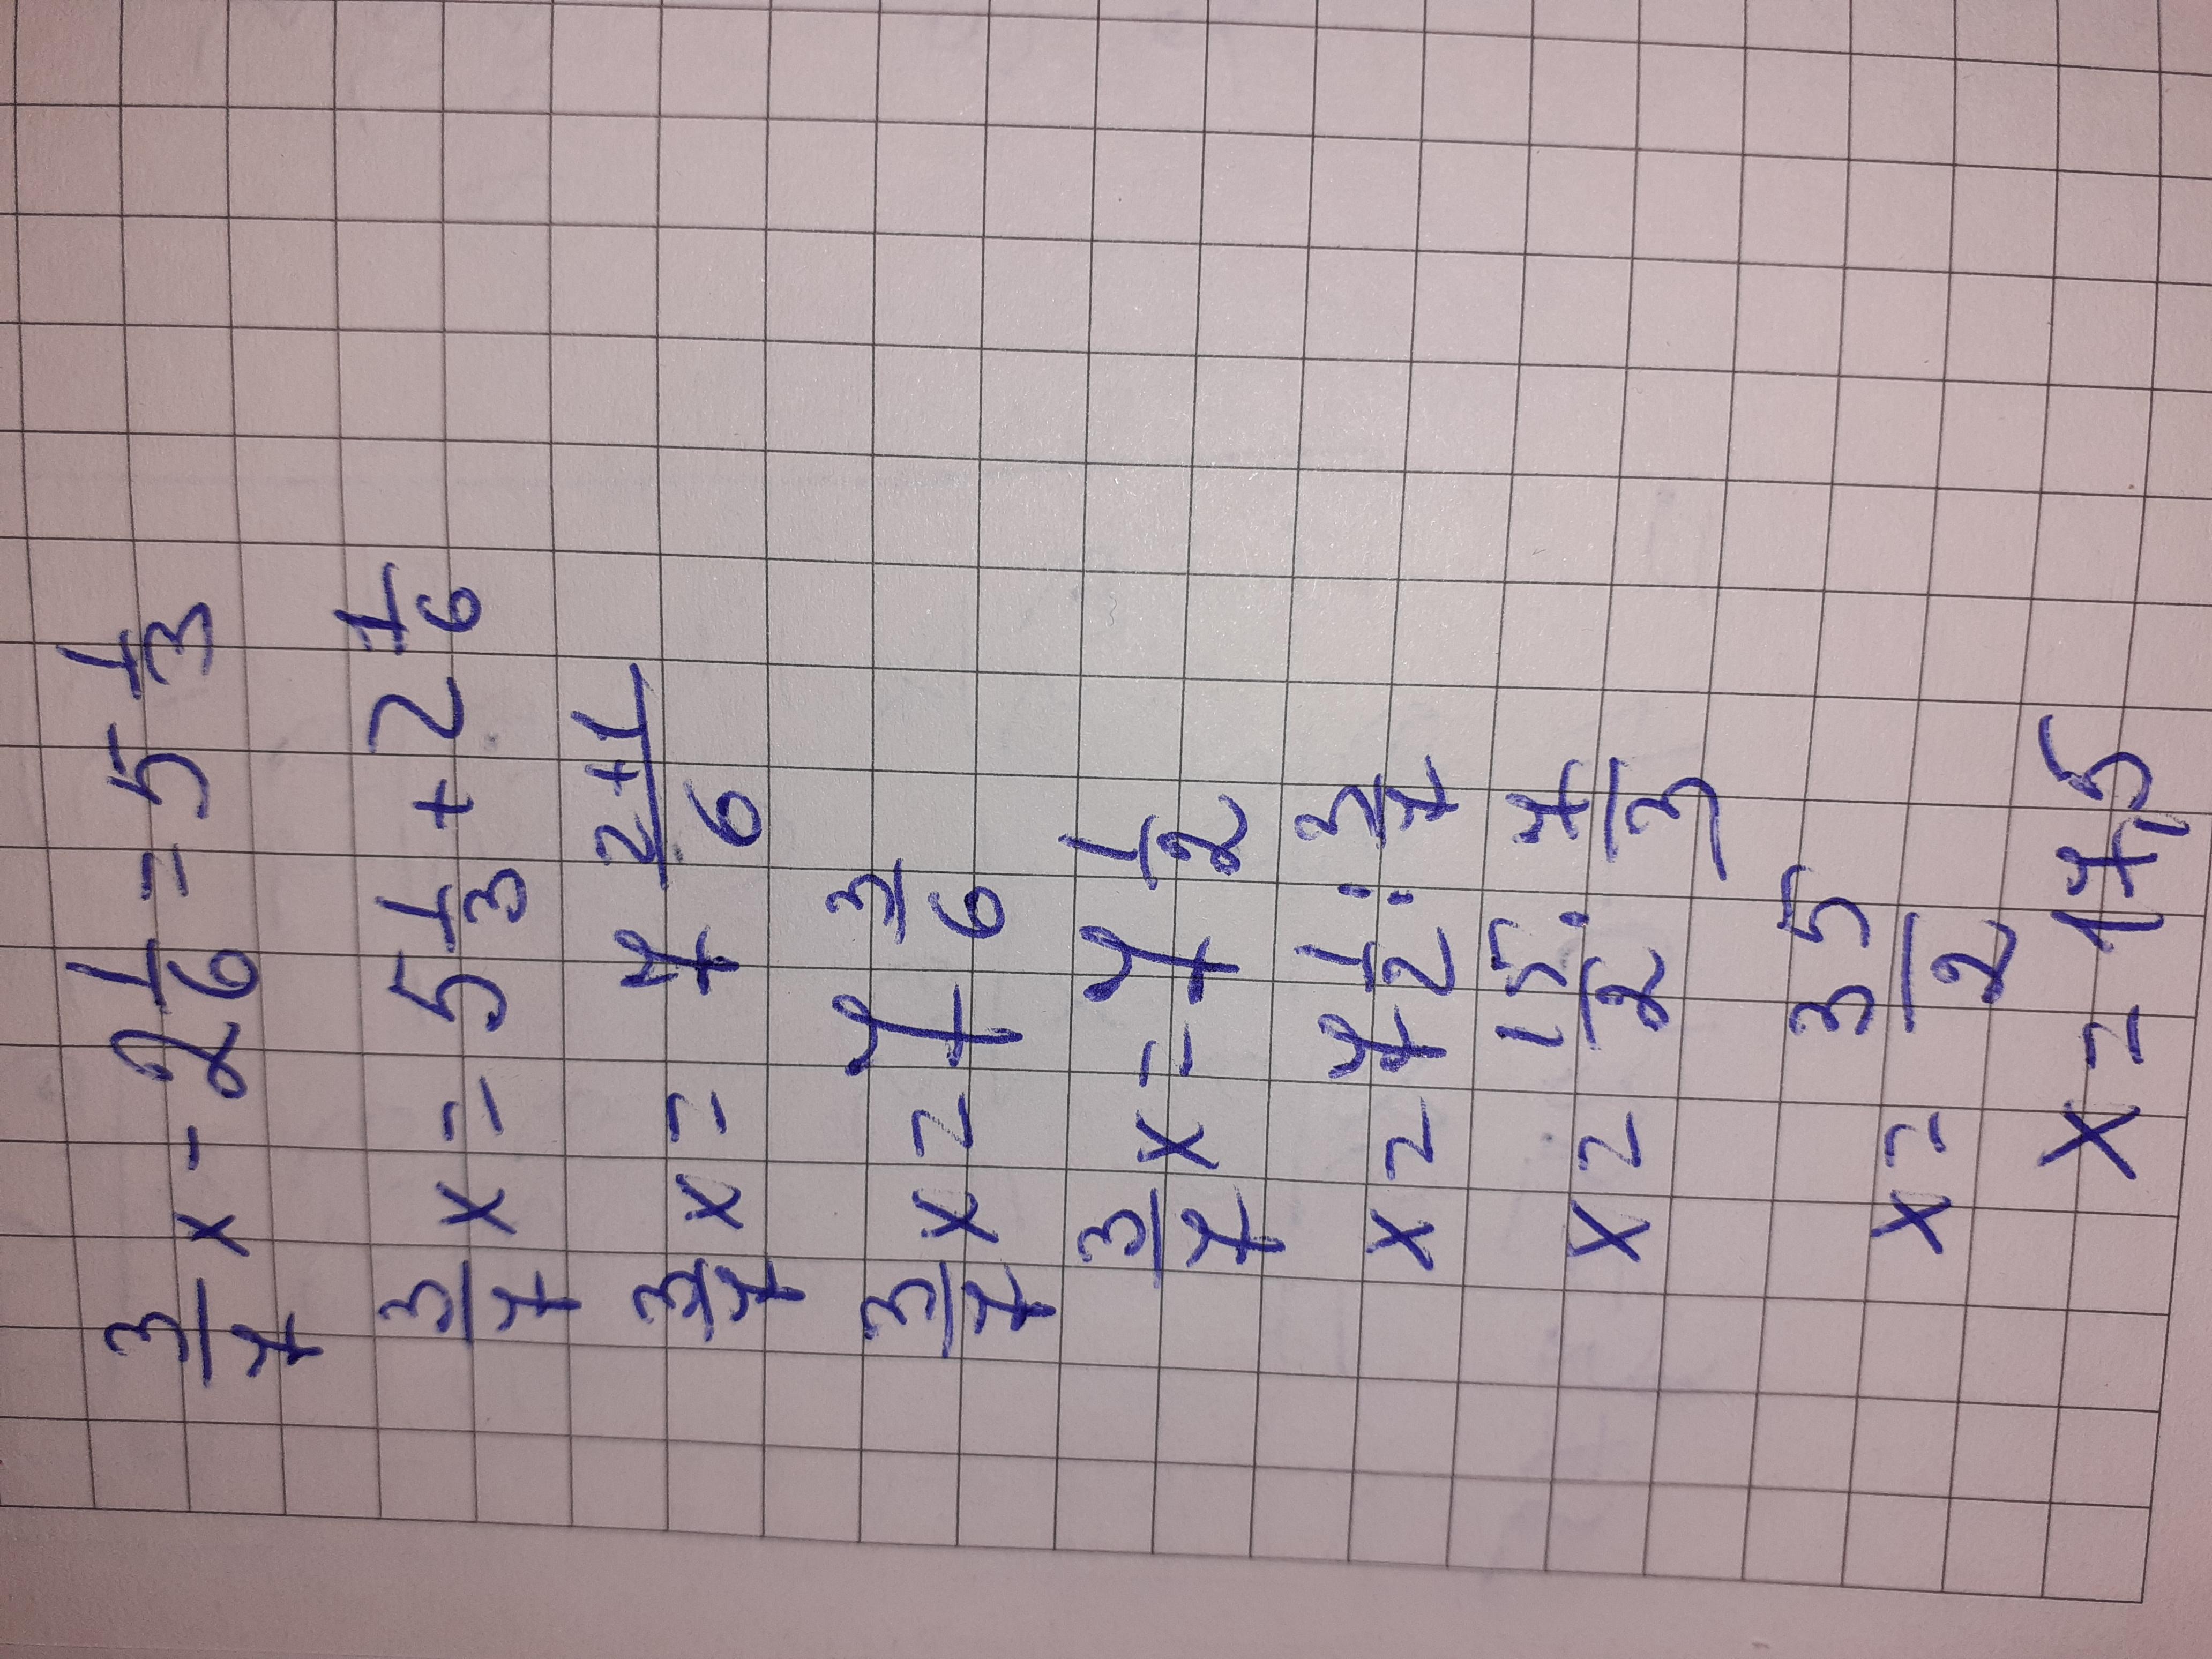 3/7 x - 2 1/6 = 5 1/3
3/7 x = 5 1/3 + 2 1/6
3/7 x = 7 (2+1)/6
3/7 x = 7 3/6
3/7 x = 7 1/2
x = 7 1/2 : 3/7
x = 15/2 · 7/3
x = 35/2
x = 17,5